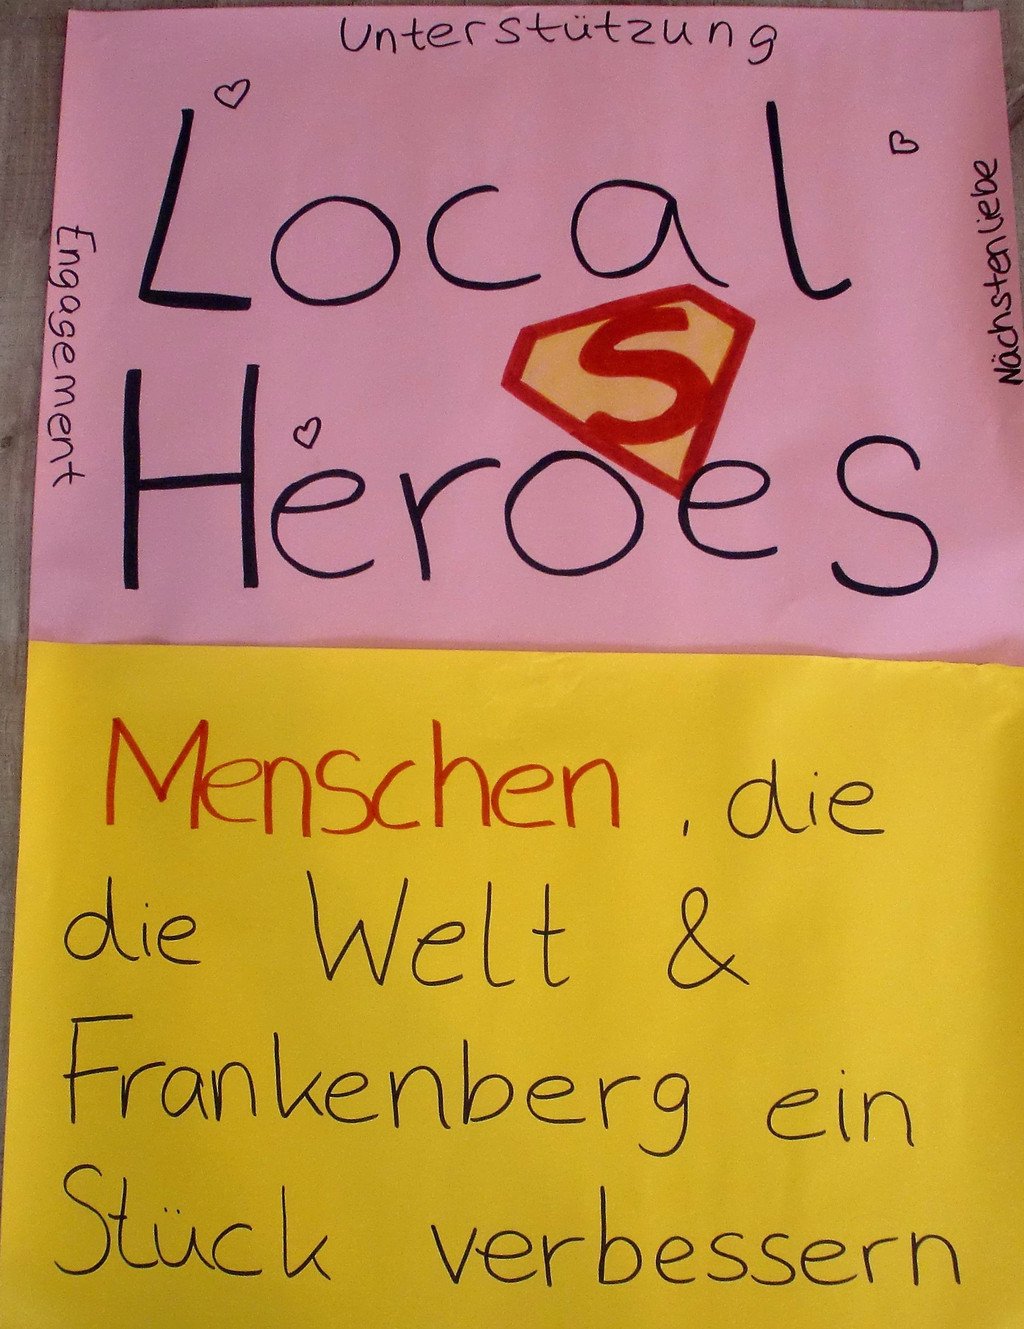 Unterstützung
Engagement
Nächstenliebe
Local
S
Heroes
Menschen, die
die Welt &
Frankenberg ein
Stück verbessern